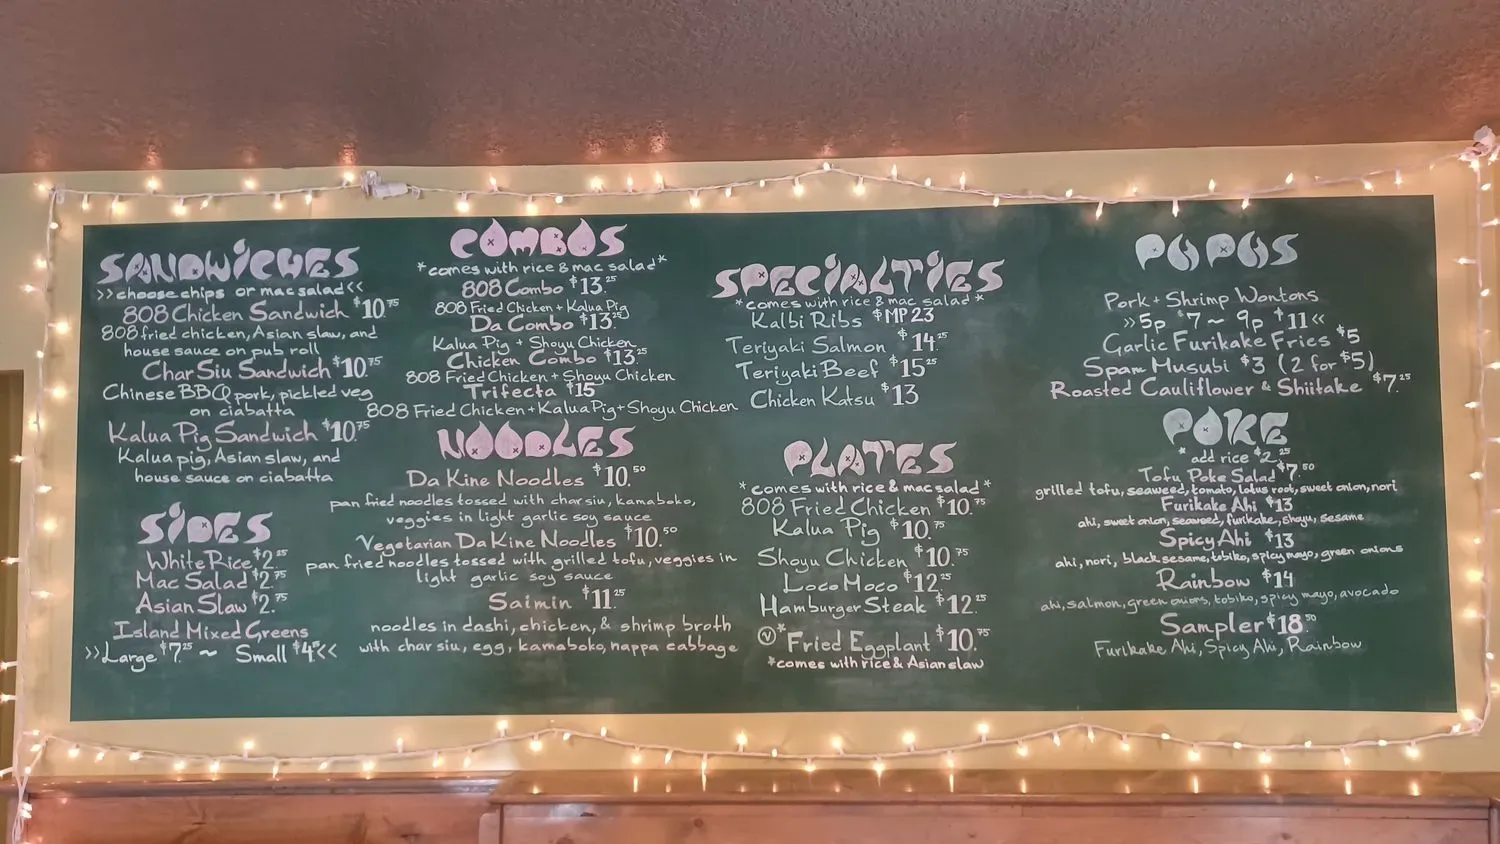 SANDWICHES
>>choose chips or mac salad<<
808 Chicken Sandwich $10.75
808 fried chicken, Asian slaw, and
house sauce on pub roll
Char Siu Sandwich $10.75
Chinese BBQ pork, pickled veg
on ciabatta
Kalua Pig Sandwich $10.75
Kalua pig, Asian slaw, and
house sauce on ciabatta
SIDES
White Rice $2.25
Mac Salad $2.75
Asian Slaw $2.75
Island Mixed Greens
>>Large $7.25 ~ Small $4.<<
COMBOS
*comes with rice & mac salad*
808 Combo $13.25
808 Fried Chicken + Kalua Pig
Da Combo $13.25
Kalua Pig + Shoyu Chicken
Chicken Combo $13.25
808 Fried Chicken + Shoyu Chicken
Trifecta $15
808 Fried Chicken + Kalua Pig + Shoyu Chicken
NOODLES
Da Kine Noodles $10.50
pan fried noodles tossed with char siu, kamaboko,
veggies in light garlic soy sauce
Vegetarian Da Kine Noodles $10.50
pan fried noodles tossed with grilled tofu, veggies in
light garlic soy sauce
Saimin $11.25
noodles in dashi, chicken, & shrimp broth
with char siu, egg, kamaboko, nappa cabbage
SPECIALTIES
*comes with rice & mac salad*
Kalbi Ribs $MP 23
Teriyaki Salmon $14.25
Teriyaki Beef $15.25
Chicken Katsu $13
PLATES
*comes with rice & mac salad*
808 Fried Chicken $10.75
Kalua Pig $10.75
Shoyu Chicken $10.75
Loco Moco $12.25
Hamburger Steak $12.25
V *Fried Eggplant $10.75
*comes with rice & Asian slaw
PUPUS
Pork + Shrimp Wontons
>>5p $7 ~ 9p $11<<
Garlic Furikake Fries $5
Spam Musubi $3 (2 for $5)
Roasted Cauliflower & Shiitake $7.25
POKE
*add rice $2.25
Tofu Poke Salad $7.50
grilled tofu, seaweed, tomato, lotus root, sweet onion, nori
Furikake Ahi $13
ahi, sweet onion, seaweed, furikake, shoyu, sesame
Spicy Ahi $13
ahi, nori, black sesame, tobiko, spicy mayo, green onions
Rainbow $14
ahi, salmon, green onions, tobiko, spicy mayo, avocado
Sampler $18.50
Furikake Ahi, Spicy Ahi, Rainbow